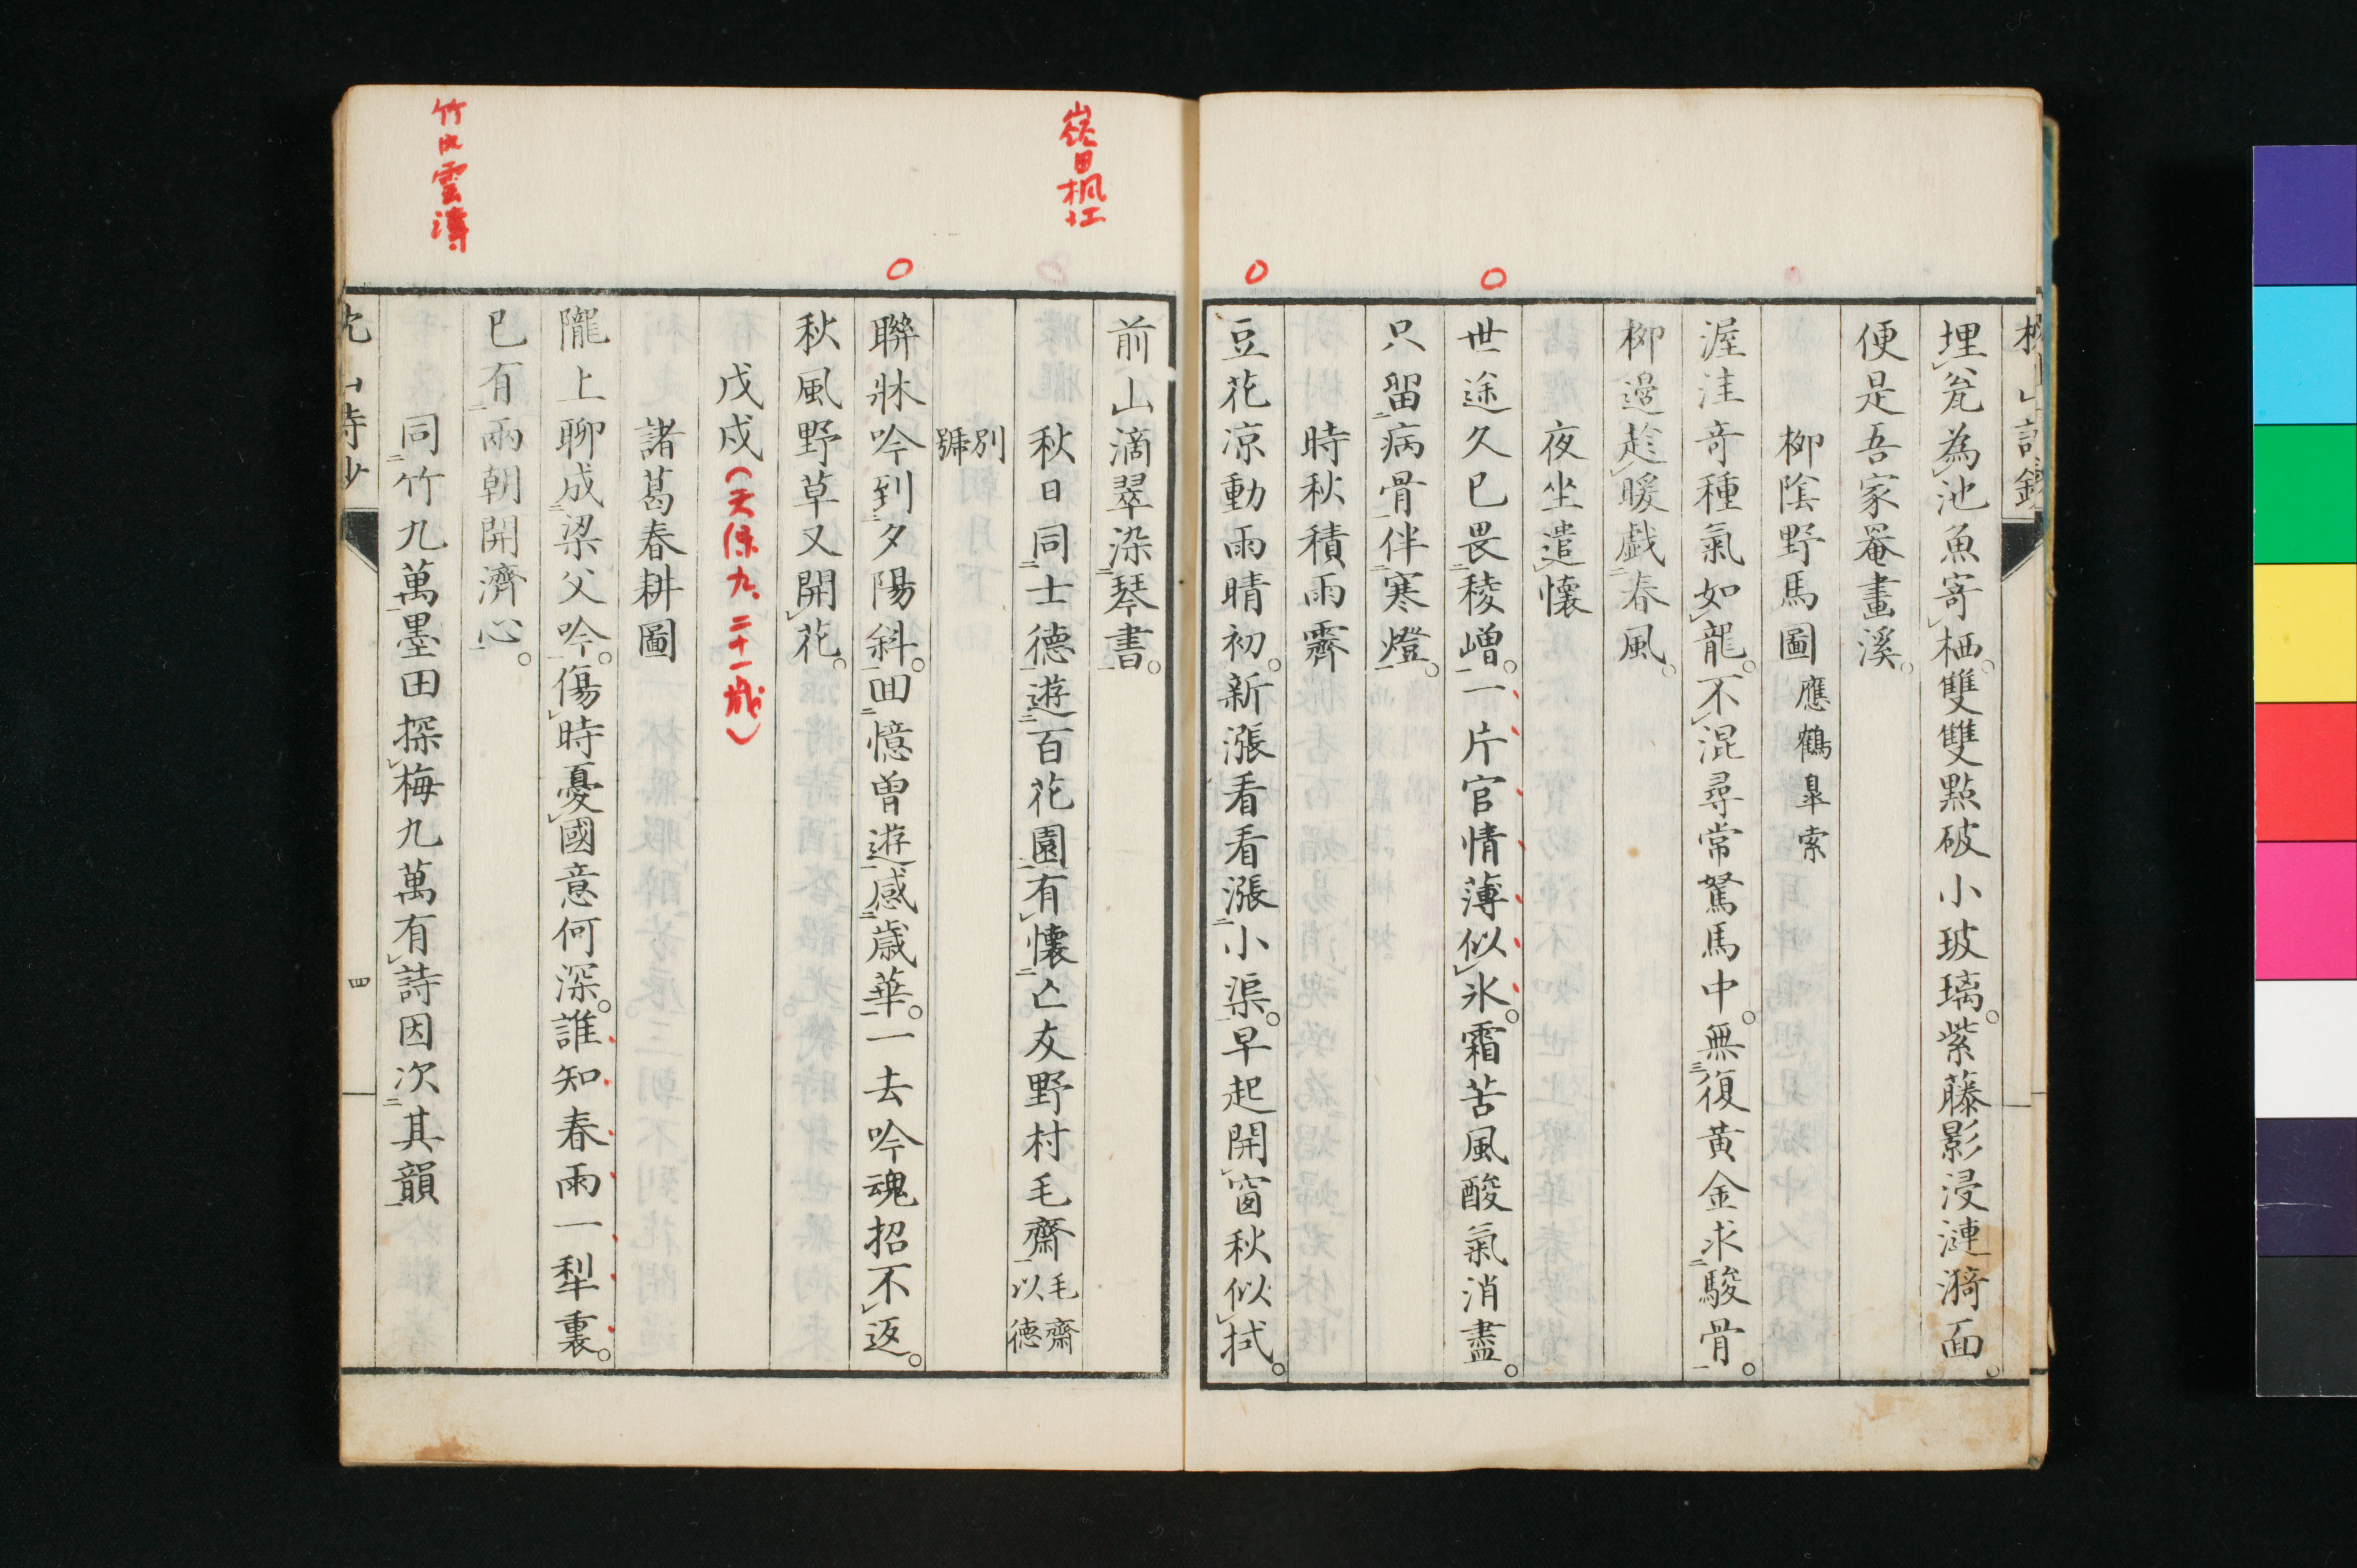 埋瓮為池魚寄栖雙雙點破小玻璃紫藤影浸漣漪面
便是吾家罨畫溪
柳陰野馬圖應鶴皐索
渥洼竒種氣如龍不混尋常駑馬中無復黃金求駿骨
柳邊趁暖戯春風
夜坐遣懷
世途久已畏稜嶒一片官情薄似氷霜苦風酸氣消盡
只留病骨伴寒燈
時秋積雨霽
豆花凉動雨晴初新漲看看漲小渠早起開窗秋似拭
前山滴翠染琴書
秋日同士德遊百花園有懷亡友野村毛齋毛齋以德
別號
聯牀吟到夕陽斜回憶曾遊感歳華一去吟魂招不返
秋風野草又開花
戊戌(天保九、二十一歳)
諸葛春耕圖
隴上聊成梁父吟傷時憂國意何深誰知春雨一犁裏
已有兩朝開濟心
同竹九萬墨田探梅九萬有詩因次其韻
四
田楓江
竹内雲濤